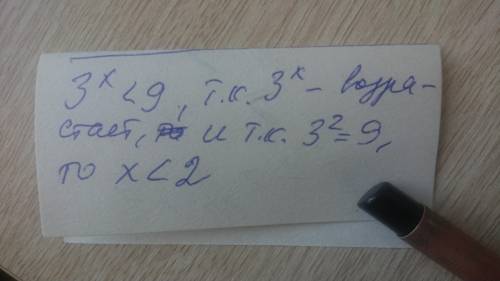 3ˣ < 9, т.к. 3ˣ - возра-
стает, и т.к. 3² = 9,
то x < 2